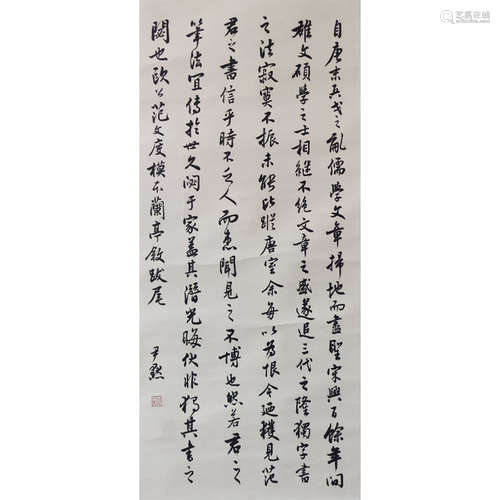 自唐末兵戈之亂儒學文章掃地而盡聖宋興百餘年間
雄文碩學之士相繼不絕文章之盛遂追三代之隆獨字書
之法寂寞不振未能比蹤唐室余每以為恨今迺獲見范
君之書信乎時不乏人而患聞見之不博也然若君之
筆法宜傳於世久闕于家蓋其潛光晦伏非獨其書之
闕也歐公范文度模本蘭亭敘跋尾
尹默